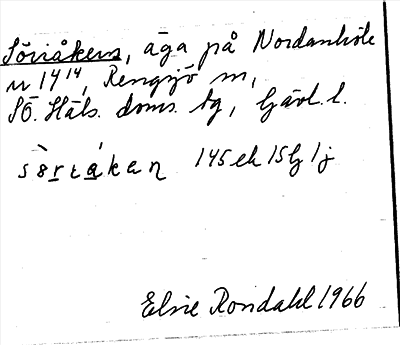 Söråkern, äga på Nordanhöle
nr 14¹⁴, Rengsjö sn,
SÖ. Häls. doms. tg, Gävl. l.
145 ek 15 lj 1j
Elsie Rondahl 1966